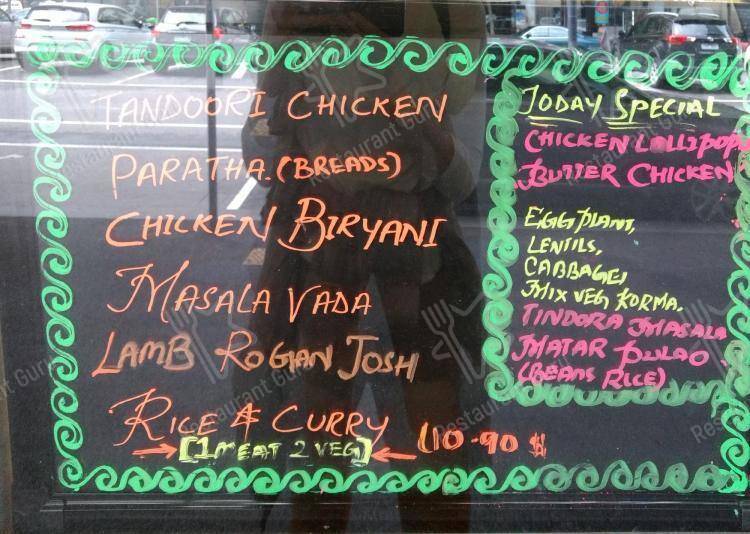 TANDOORI CHICKEN
PARATHA.(BREADS)
CHICKEN BIRYANI
MASALA VADA
LAMB ROGAN JOSH
RICE & CURRY
[1 MEAT 2 VEG] 10-90 $
TODAY SPECIAL
CHICKEN LOLLIPOP
BUTTER CHICKEN
EGGPLANT,
LENTILS,
CABBAGE,
MIX VEG KORMA.
TINDORA MASALA
MATAR PULAO
(BEANS RICE)
Restaurant Guru